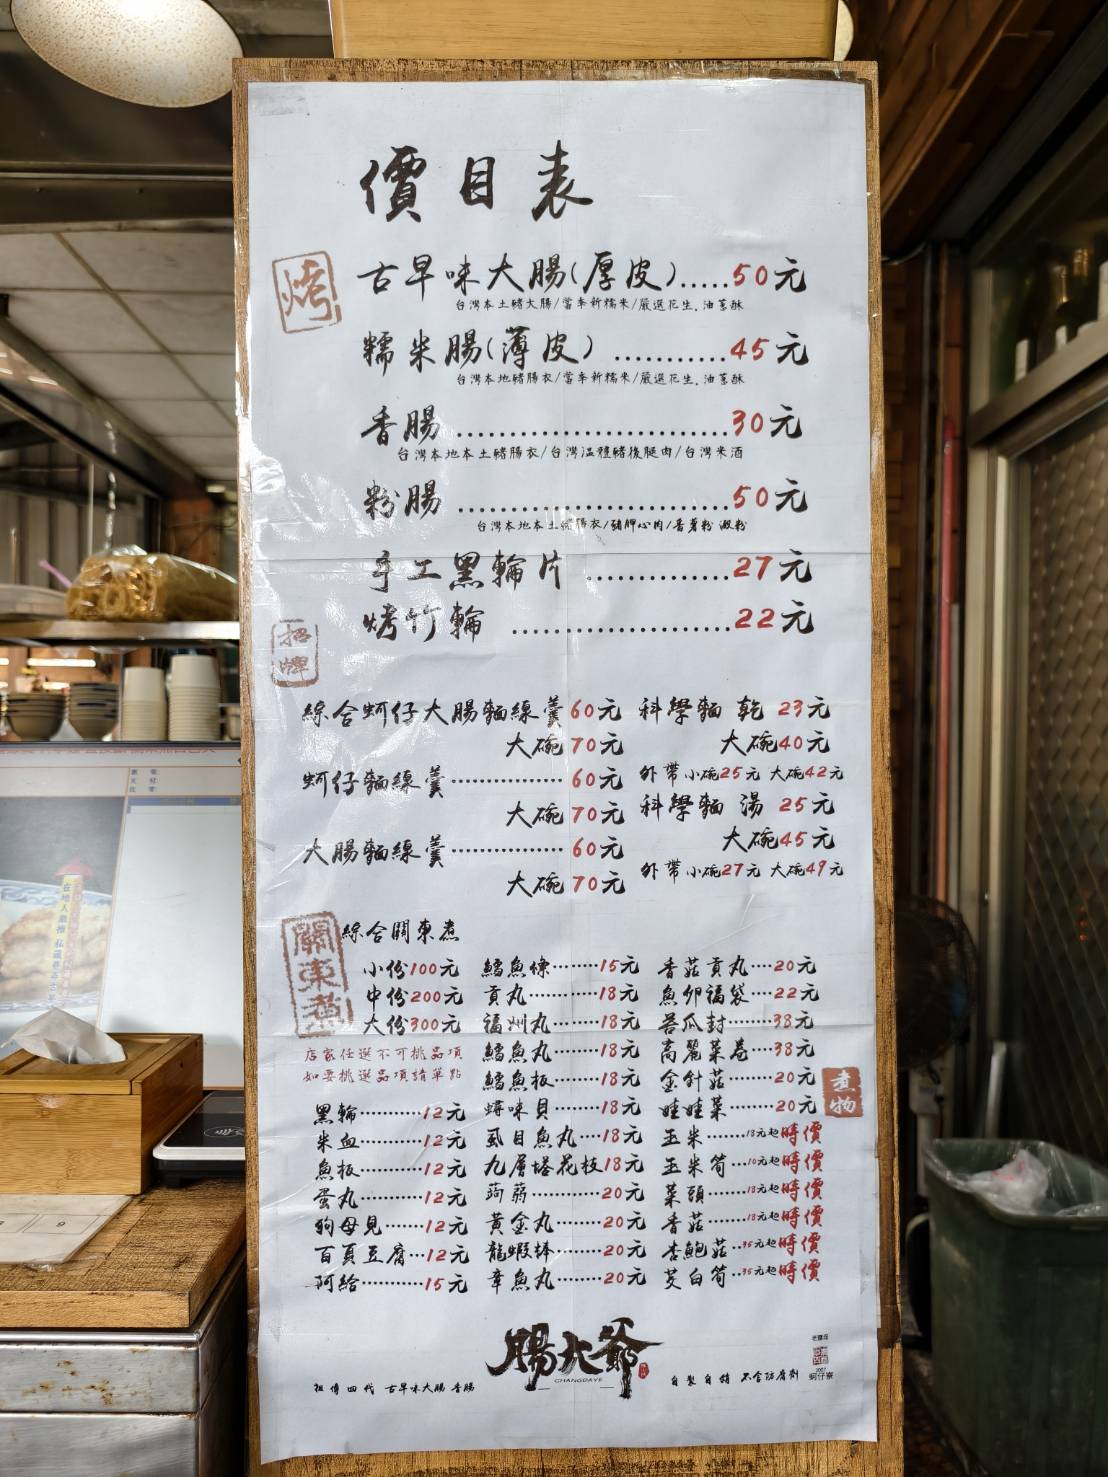 價目表
烤
古早味大腸(厚皮).....50元
台灣本土豬大腸/當季新糯米/嚴選花生,油蔥酥
糯米腸(薄皮)...........45元
台灣本地豬腸衣/當季新糯米/嚴選花生,油蔥酥
香腸...........................30元
台灣本地本土豬腸衣/台灣溫體豬後腿肉/台灣米酒
粉腸...........................50元
台灣本地本土豬腸衣/豬胛心肉/番薯粉 澱粉
手工黑輪片..............27元
烤竹輪......................22元
招牌
綜合蚵仔大腸麵線羹60元
大碗70元
蚵仔麵線羹...............60元
大碗70元
大腸麵線羹...............60元
大碗70元
科學麵 乾 23元
大碗40元
外帶小碗25元 大碗42元
科學麵 湯 25元
大碗45元
外帶小碗27元 大碗49元
關東煮
綜合關東煮
小份100元
中份200元
大份300元
店家任選不可挑品項
如要挑選品項請單點
黑輪...........12元
米血...........12元
魚板...........12元
蛋丸...........12元
狗母見.......12元
百頁豆腐...12元
阿給...........15元
鱈魚條........15元
貢丸............18元
福州丸........18元
鱈魚丸........18元
鱈魚板........18元
蟳味貝........18元
虱目魚丸....18元
九層塔花枝18元
蒟蒻............20元
黃金丸........20元
龍蝦棒........20元
章魚丸........20元
香菇貢丸....20元
魚卵福袋....22元
苦瓜封........38元
高麗菜卷....38元
金針菇........20元
娃娃菜........20元
煮物
玉米.......18元起時價
玉米筍...10元起時價
菜頭.......18元起時價
香菇.......18元起時價
杏鮑菇..35元起時價
茭白筍..35元起時價
腸大爺
CHANGDAYE
祖傳四代 古早味大腸 香腸
自製自銷 不含防腐劑
2007
蚵仔寮
在地人推推 私藏